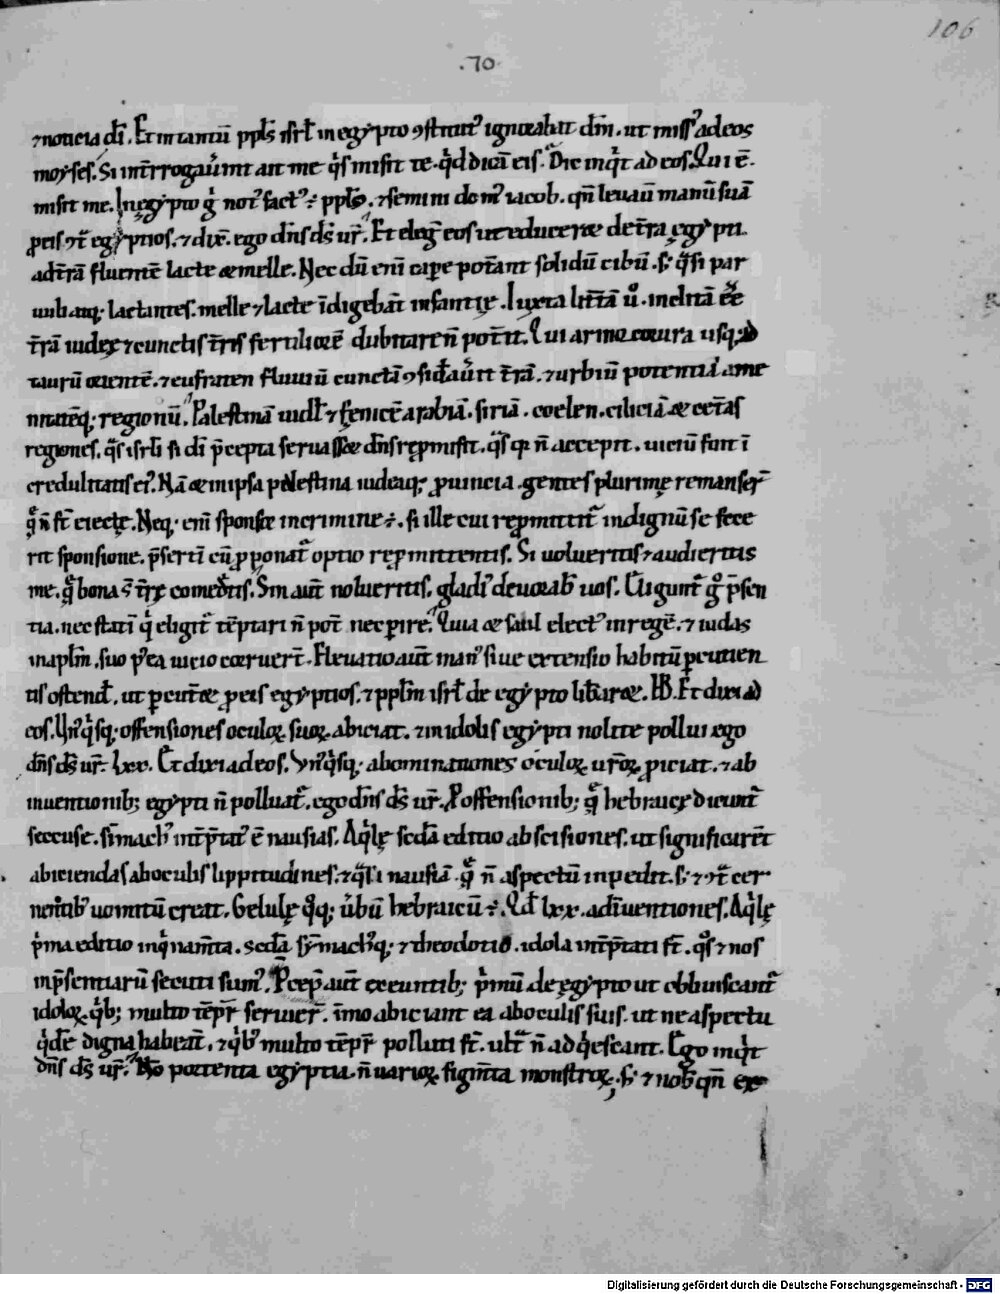 106
.70.
⁊noticia dī. Et intantū ppl̄s isrł in egypto ꝯstitut᾽ ignorabat dn̄m. ut miss᾽ adeos
moyses. Si int̄rrogauerint ait me q̇s misit te. qd̄ dicā eis. Dic inqͥt ad eos. Qui ē.
misit me. In ęgypto gͦ not᾽ fact᾽ ÷ ppl̄o. ⁊semini dom᾽ iacob. qn̄ leuauī manū suā
ꝑeis ꝯtᷓ egyptios. ⁊dix̄. ego dn̄s ds̄ ur̄. Et eleḡ eos ut educeret de tr̄a ęgypti.
ad tr̄ā fluentē lacte et melle. Nec dū enī capere potat̄ solidū cibū. s; qͣsi par
uuli atq; lactantes. melle ⁊lacte īdigebāt infantię. Iuxta litt̄ā u᷎. inclitā ēē
tr̄ā iudęę ⁊cunctis tr̄is fertiliorē dubitare n̄ pot̄it. Qui a rinocorura usq; ad
taurū montē. ⁊eufraten fluuiū cunctā ꝯsidauerit tr̄ā. ⁊urbiū potentiā ame
nitatēq; regionū. Palestinā iudęā ⁊fenicē arabiā. siriā. coelen. ciliciā et cet̄as
regiones. qͣs isrł si dī p̄cepta seruasset dn̄s repmisit. qͣs qͥ n̄ accepit. uiciū fuit ī
credulitatis ei᾽. Nā et in ipsa palestina iudeaq; ꝓuincia. gentes plurimę remanser̄
qͣ n̄ st̄ eiectę. Neq; enī sponsor in crimine ÷. si ille cui repmittit᾽ indignū se fece
rit sponsione. p̄sertī cū ꝓponat᾽ optio repmittentis. Si uolueritis ⁊audieritis
me. qͣ bona s̄ tr̄ę comedetis. Sin aūt nolueritis. gladi᾽ deuorab̄ uos. Eligunt᾽ gͦ p̄sen
tia. nec statī qͥ eligit᾽ tēptari n̄ pot̄ nec pire. Quia et saul elect᾽ in regē. ⁊ iudas
in aplm̄. suo p᾽ea uicio corruert̄. Eleuatio aūt man᾽ siue extensio habitū pcutien
tis ostend̄. ut pcut̄et ꝑeis egyptios. ⁊pplm̄ isrł de egypto libaret. HB̄. Et dixi ad
eos. Un᾽qͥsq; offensiones oculoꝝ suoꝝ abiciat. ⁊in idolis egypti nolite pollui ego
dn̄s ds̄ ur̄. lxx. Et dixi ad eos. Un᾽qͥsq; abominationes oculoꝝ uroꝝ ꝓiciat. ⁊ab
inuentionib; egypti n̄ polluat᾽. ego dn̄s ds̄ ur̄. P offensionib; qͣ hebraice dicunt᾽
seccuse. sȳmach᾽ int̄p̄tat᾽ ē nausias. Aqͥlę secd̄a editio abscisiones. ut significaret̄
abiciendas ab oculis lippitudines. ⁊qͣsi nausiā. qͣ n̄ aspectū inpedit. s; ⁊ ꝯtᷓ cer
nentib᾽ uomitū creat. Gelulę qͦq; ūbū hebraicū ÷. Qd̄ lxx. adīuentiones. Aqͥlę
pͥma editio inqͥnam̄ta. secd̄a sȳmach᾽q; ⁊theodotio. idola int̄p̄tati st̄. qͦs ⁊nos
inp̄sentiarū secuti sum᾽. Pcep̄ aūt exeuntib; pͥmū de ęgypto ut obliuiscant᾽
idoloꝝ qͥb; multo tēpr̄ seruier̄. īmo abiciant ea ab oculis suis. ut ne aspectu
qͥdē digna habeat̄. ⁊qͥb᾽ multo tēpr̄ polluti st̄. ultᷓ n̄ adqͥescant. Ego inqͥt
dn̄s ds̄ ur̄. Nō portenta egyptia. n̄ uarioꝝ figm̄ta monstroꝝ. s; ⁊nob̄ qn̄ ex
Digitalisierung gefördert durch die Deutsche Forschungsgemeinschaft - DFG